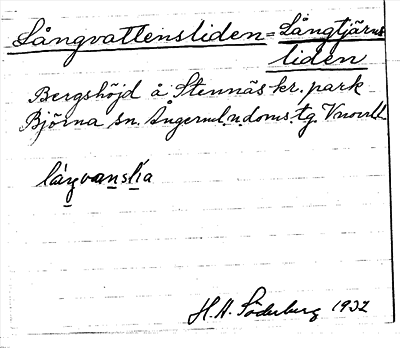 Långvattensliden = Långtjärns
liden
Bergshöjd å Stennäs kr. park
Björna sn. Ångerml. n. doms. tg. V norrl. l.
H. H. Söderberg 1932